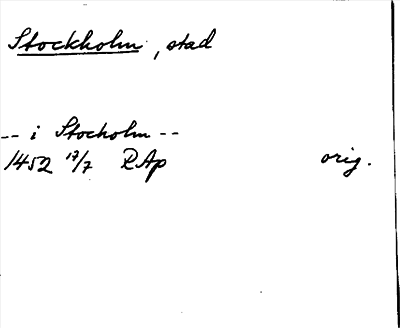 Stockholm, stad
-- i Stocholm --
1452 17/7 RAp orig.